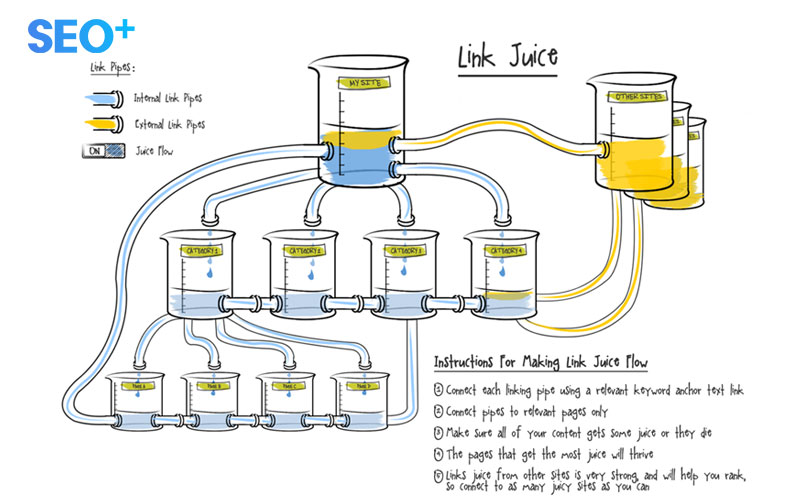 SEO+
Link Juice
Link Pipes:
Internal Link Pipes
External Link Pipes
ON
Juice Flow
MY SITE
OTHER SITES
CATEGORY 1
CATEGORY 2
CATEGORY 3
CATEGORY 4
PAGE A
PAGE B
PAGE C
PAGE D
Instructions For Making Link Juice Flow
1 Connect each linking pipe using a relevant keyword anchor text link
2 Connect pipes to relevant pages only
3 Make sure all of your content gets some juice or they die
4 The pages that get the most juice will thrive
5 Links juice from other sites is very strong, and will help you rank,
so connect to as many juicy sites as you can